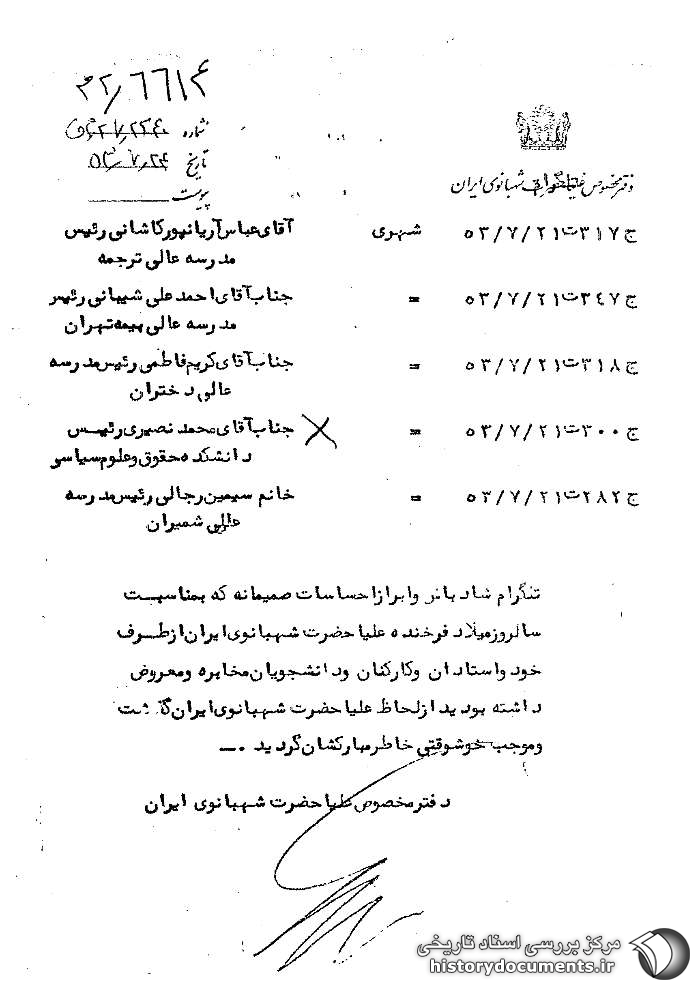 ۳۲/۶۶۱۴
شماره
تاریخ ۵۳/۷/۲۴
پیوست
دفتر مخصوص علیاحضرت شهبانوی ایران
ج ۳۱۷ ت ۵۳/۷/۲۱ شهری آقای عباس آریانپور کاشانی رئیس
مدرسه عالی ترجمه
ج ۳۴۷ ت ۵۳/۷/۲۱ = جناب آقای احمد علی شیبانی رئیس
مدرسه عالی بیمه تهران
ج ۳۱۸ ت ۵۳/۷/۲۱ = جناب آقای کریم فاطمی رئیس مدرسه
عالی دختران
ج ۳۰۰ ت ۵۳/۷/۲۱ = جناب آقای محمد نصیری رئیس
دانشکده حقوق و علوم سیاسی
ج ۲۸۲ ت ۵۳/۷/۲۱ = خانم سیمین رجالی رئیس مدرسه
عالی شمیران
تلگرام شادباش و ابراز احساسات صمیمانه که بمناسبت
سالروز میلاد فرخنده علیاحضرت شهبانوی ایران از طرف
خود و استادان و کارکنان و دانشجویان مخابره و معروض
داشته بودید از لحاظ علیاحضرت شهبانوی ایران گذشت
و موجب خوشوقتی خاطر مبارکشان گردید .ـ
دفتر مخصوص علیاحضرت شهبانوی ایران
مرکز بررسی اسناد تاریخی
historydocuments.ir